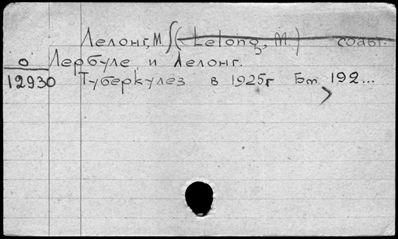 Лелонг, М. (Lelong, M.) соавт.
о Лербуле и Лелонг.
12930 Туберкулез в 1925г Бт. 192...